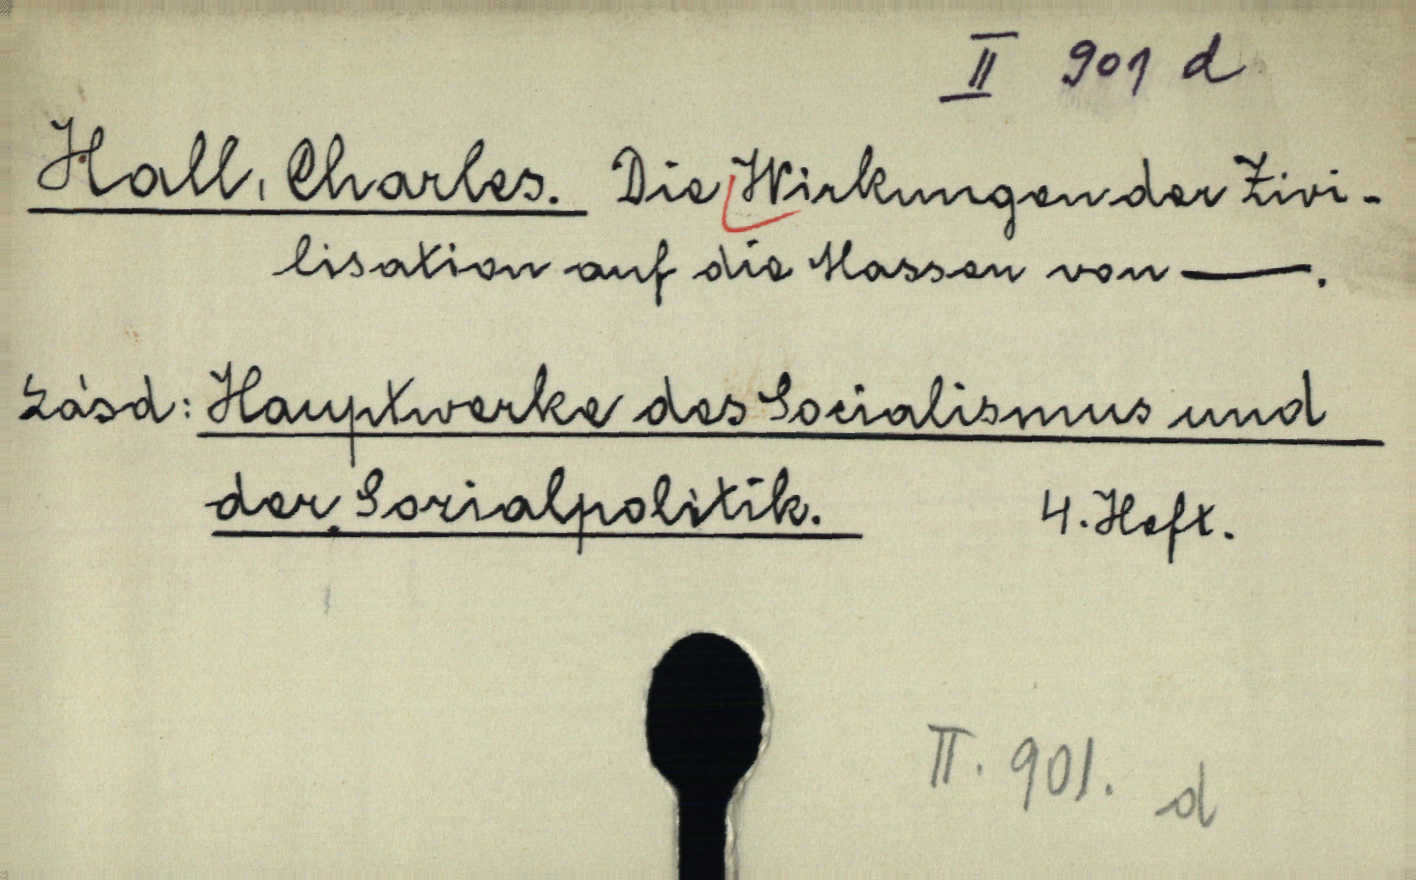 II 901 d
Hall, Charles. Die Wirkungen der Zivi-
lisation auf die Massen von ——.
Lásd: Hauptwerke des Socialismus und
der Sozialpolitik. 4. Heft.
II. 901. d